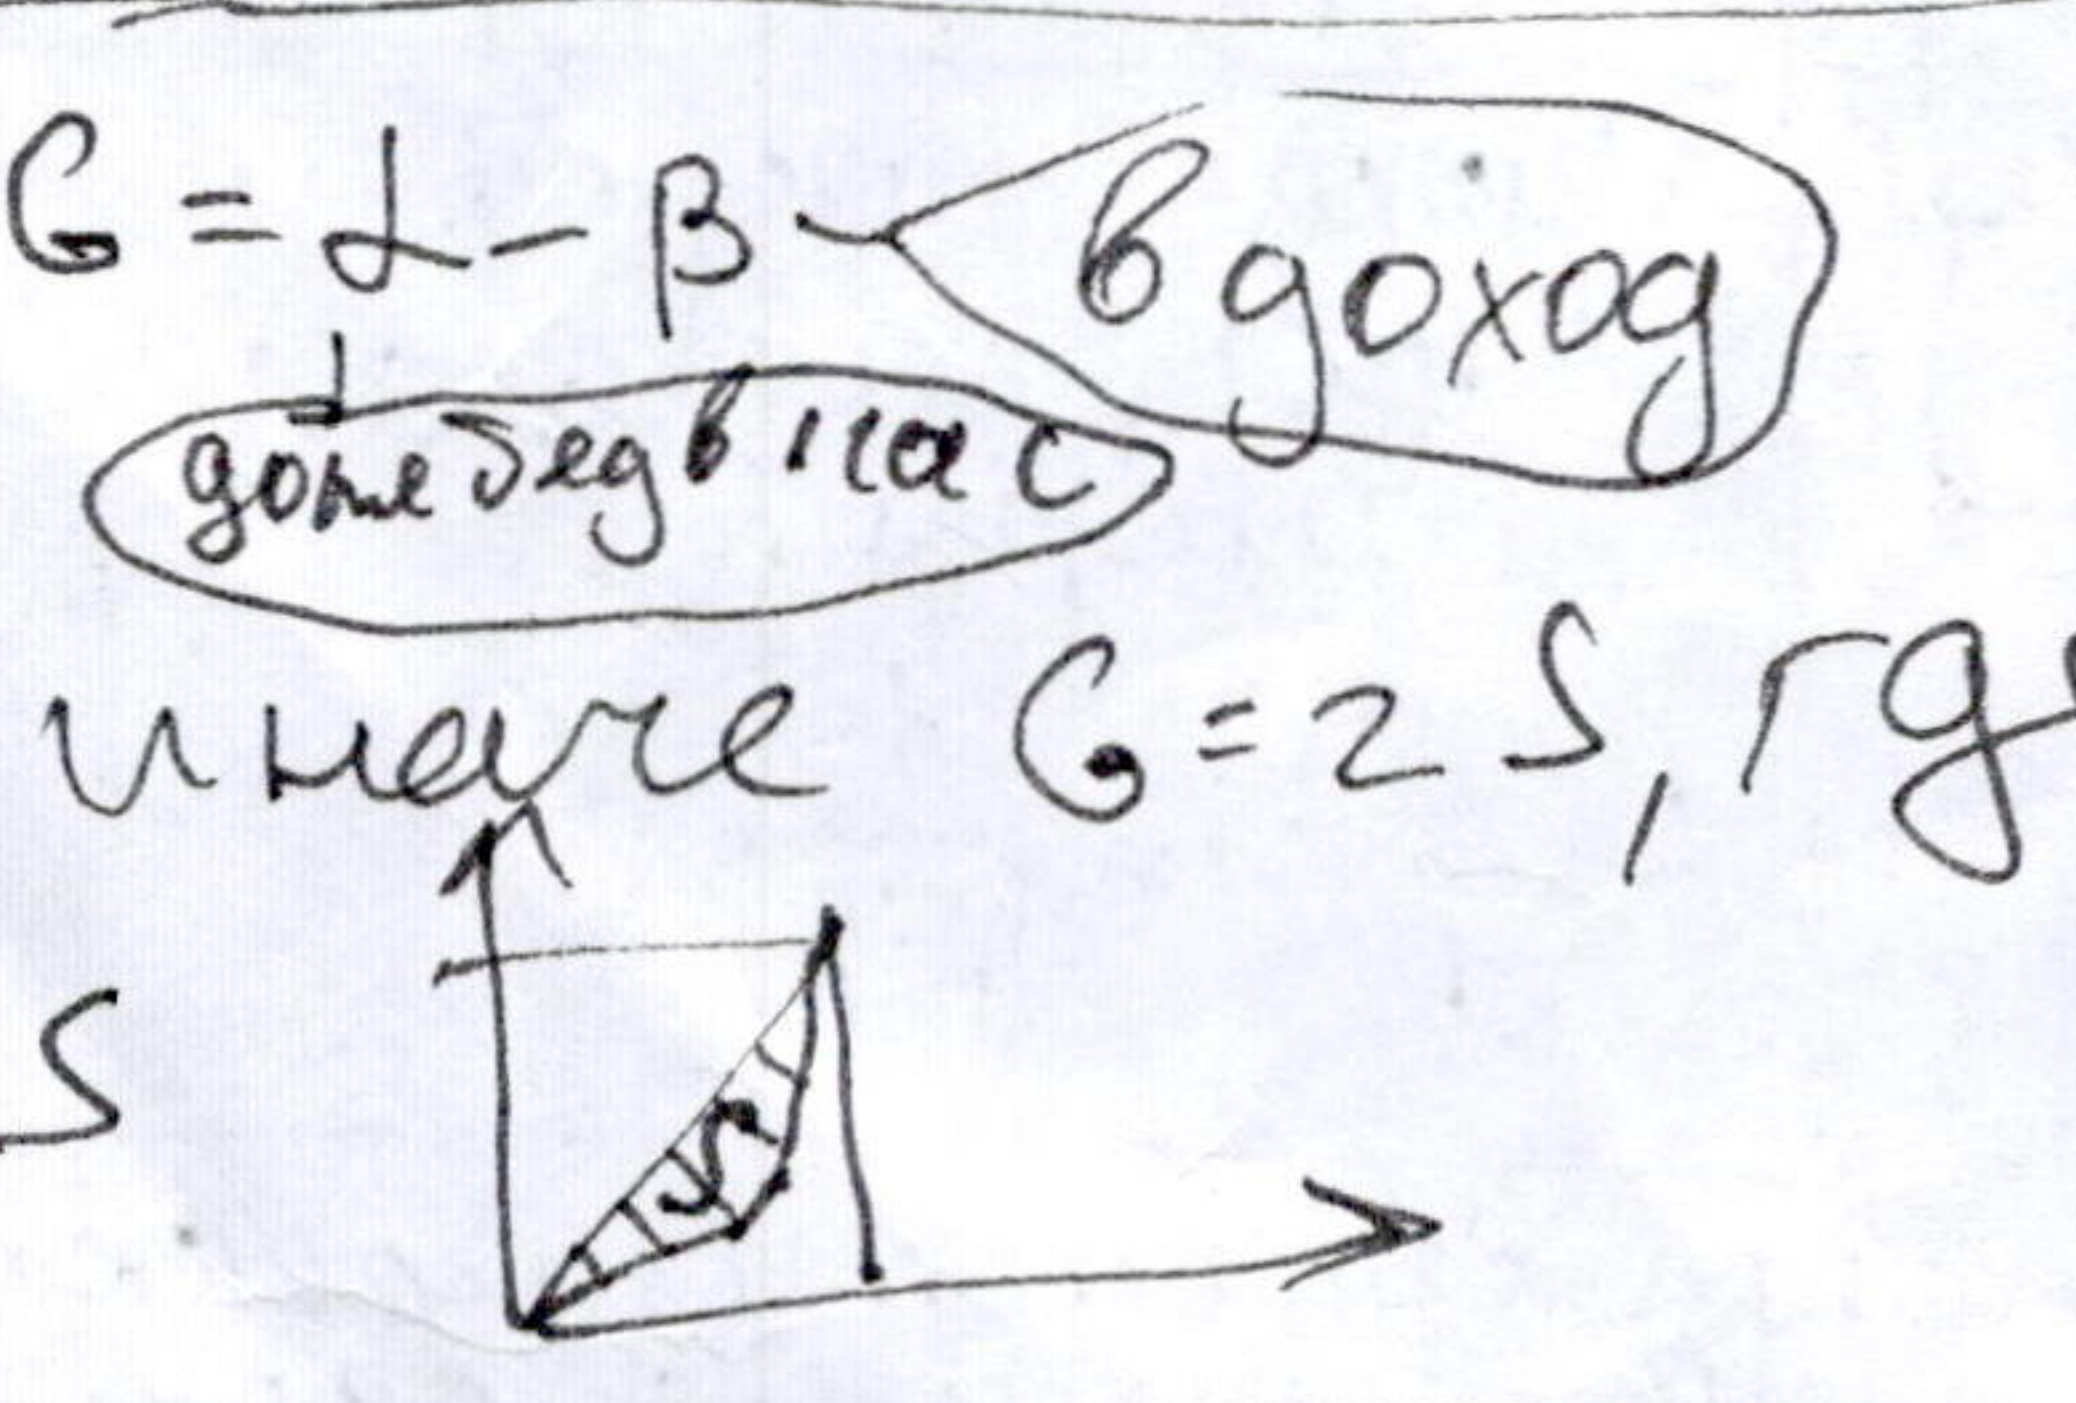 G = α - β - в доход
доля бед в нас
иначе G = 2 S, где
S
S